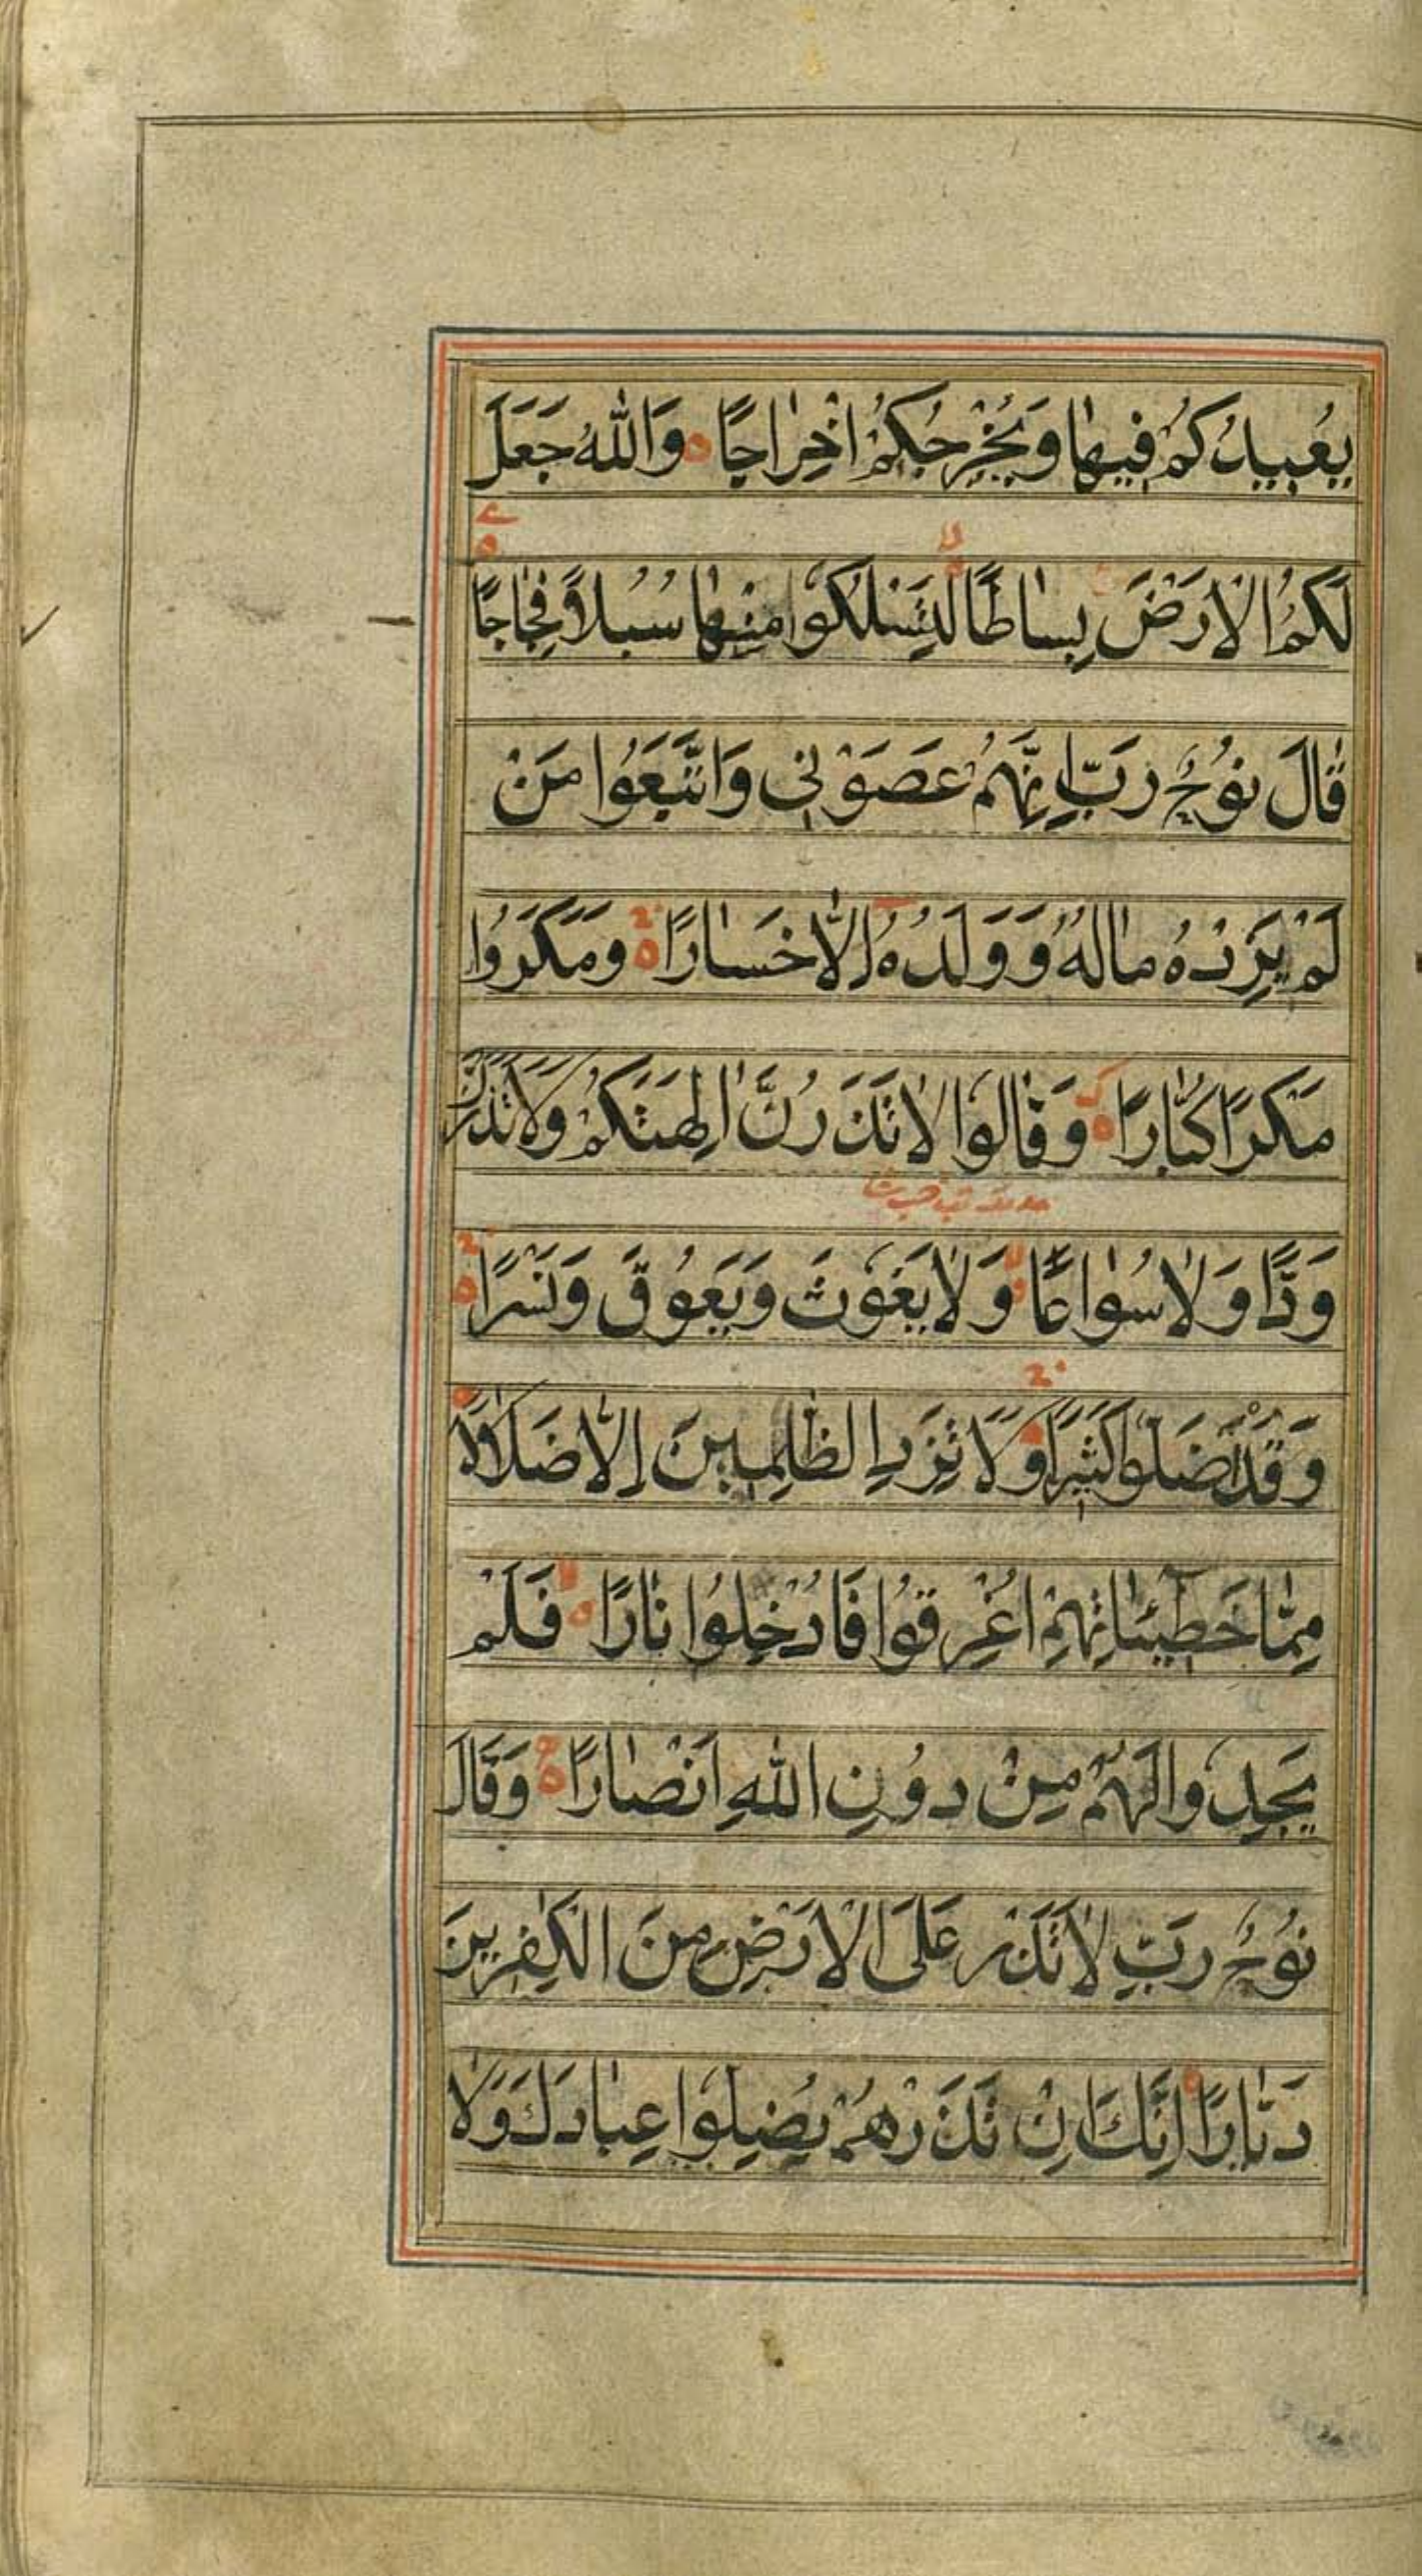 يُعِيدُكُمْ فِيهٰا وَيُخْرِجُكُمْ اِخْرٰاجًا ۝ وَاللّٰهُ جَعَلَ
لَكُمُ الْاَرْضَ بِسٰاطًا لِتَسْلُكُوا مِنْهٰا سُبُلاً فِجٰاجًا
قٰالَ نُوحٌ رَبِّ اِنَّهُمْ عَصَوْنِى وَاتَّبَعُوا مَنْ
لَمْ يَزِدْهُ مٰالُهُ وَوَلَدُهُ اِلّٰا خَسٰارًا ۝ وَمَكَرُوا
مَكْرًا كُبّٰارًا ۝ وَقٰالُوا لٰا تَذَرُنَّ اٰلِهَتَكُمْ وَلٰا تَذَرُنَّ
وَدًّا وَلٰا سُوٰاعًا وَلٰا يَغُوثَ وَيَعُوقَ وَنَسْرًا ۝
وَقَدْ اَضَلُّوا كَثِيرًا وَلٰا تَزِدِ الظّٰلِمِينَ اِلّٰا ضَلٰالًا
مِمّٰا خَطِيٓئٰاتِهِمْ اُغْرِقُوا فَاُدْخِلُوا نٰارًا ۝ فَلَمْ
يَجِدُوا لَهُمْ مِنْ دُونِ اللّٰهِ اَنْصٰارًا ۝ وَقٰالَ
نُوحٌ رَبِّ لٰا تَذَرْ عَلَى الْاَرْضِ مِنَ الْكٰفِرِينَ
دَيّٰارًا ۝ اِنَّكَ اِنْ تَذَرْهُمْ يُضِلُّوا عِبٰادَكَ وَلٰا